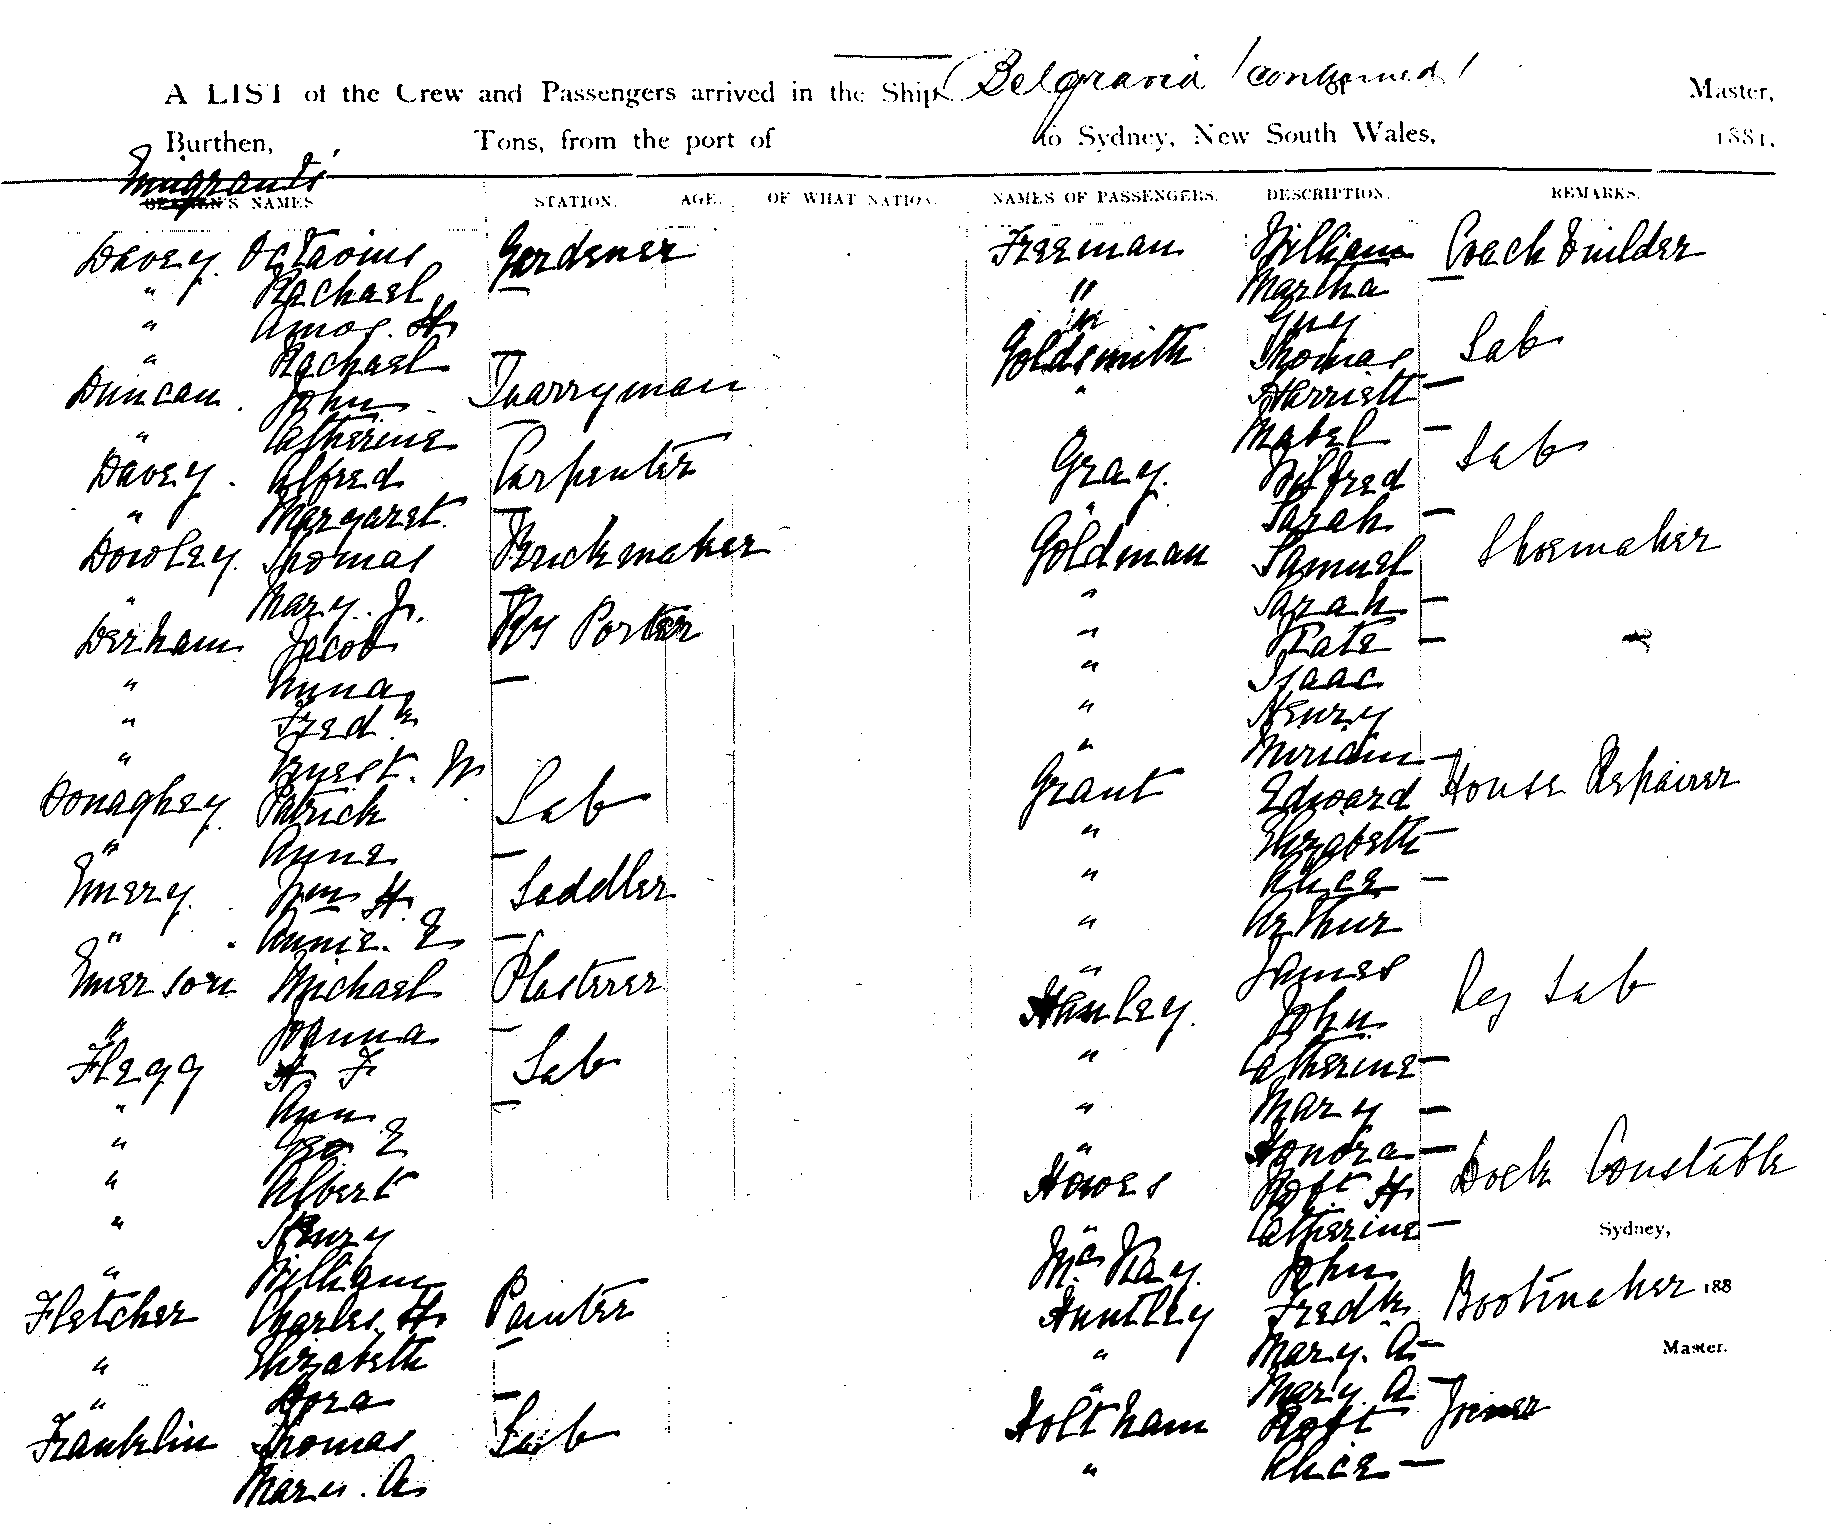 A LIST of the Crew and Passengers arrived in the Ship Belgravia (continued) Master,
Burthen, Tons, from the port of to Sydney, New South Wales, 1881.
Emigrants
SEAMEN'S NAMES STATION. AGE. OF WHAT NATION.
Davey Octavius Gardener
" Rachael —
" Amos. H
" Rachael —
Duncan John Quarryman
" Catherine —
Davey Alfred Carpenter
" Margaret —
Dowley Thomas Brickmaker
" Mary. J. —
Derham Jacob Ry Porter
" Anna —
" Fredk
" Ernest. W
Donaghey Patrick Lab
" Anne —
Emery Wm H. Saddler
" Annie. E —
Emerson Michael Plasterer
" Joanna —
Flegg H F Lab
" Ann —
" Geo E
" Albert
" Henry
" William
Fletcher Charles. H Painter
" Elizabeth —
" Dora —
Franklin Thomas Lab
Mary. A
NAMES OF PASSENGERS. DESCRIPTION. REMARKS.
Freeman William Coach Builder
" Martha —
" Guy
Goldsmith Thomas Lab
" Harriett —
Mabel —
Gray Wilfred Lab
" Sarah —
Goldman Samuel Shoemaker
" Sarah —
" Kate —
" Isaac
" Henry
" Miriam —
Grant Edward House Repairer
" Elizabeth —
" Alice —
" Arthur
" James
Hanley John Rly Lab
" Catherine —
" Mary —
" Honora —
Howes Robt H Dock Constable
" Catherine —
Sydney,
McKay John
Huntley Fredk Bootmaker 188
" Mary. A —
Master.
" Mary. A —
Holtham Robt Joiner
" Alice —